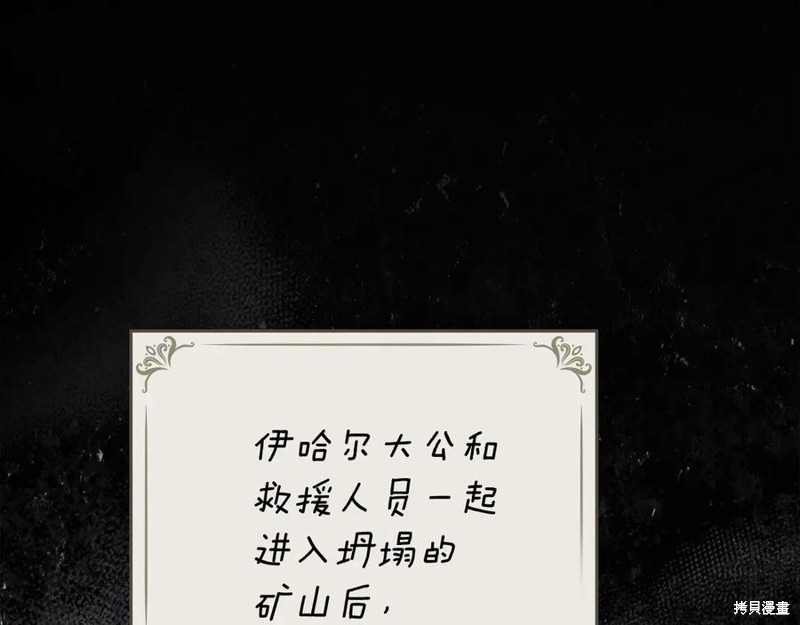 伊哈尔大公和
救援人员一起
进入坍塌的
矿山后,
拷貝漫畫